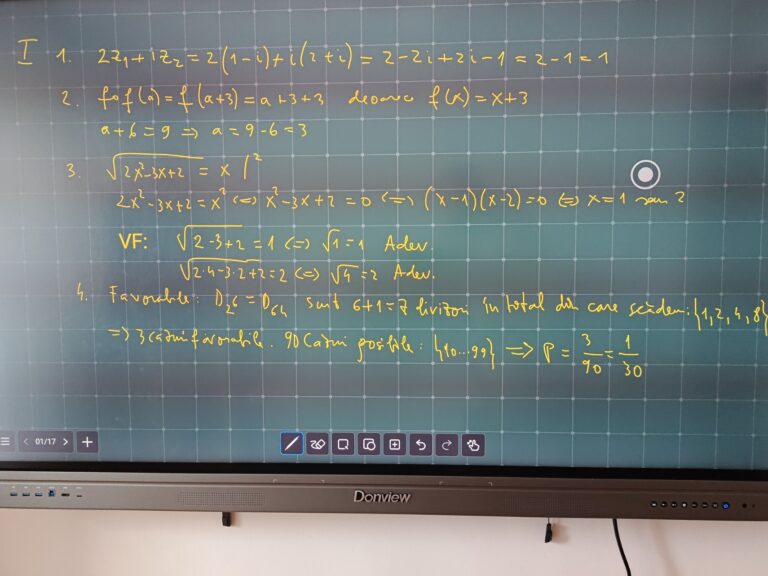 I 1. 2z₁+iz₂ = 2(1-i)+i(2+i) = 2-2i+2i-1 = 2-1 = 1
2. f∘f(a) = f(a+3) = a+3+3 deoarece f(x) = x+3
a+6=9 => a = 9-6 = 3
3. √(2x²-3x+2) = x |²
2x²-3x+2 = x² <=> x²-3x+2 = 0 <=> (x-1)(x-2)=0 <=> x=1 sau 2
VF: √(2-3+2) = 1 <=> √1 = 1 Adev.
√(2·4-3·2+2) = 2 <=> √4 = 2 Adev.
4. Favorabile: D₂⁶ = D₆₄ sunt 6+1=7 divizori în total din care scădem: {1,2,4,8}
=> 3 cazuri favorabile. 90 Cazuri posibile: {10...99} => P = 3/90 = 1/30
01/17
Donview